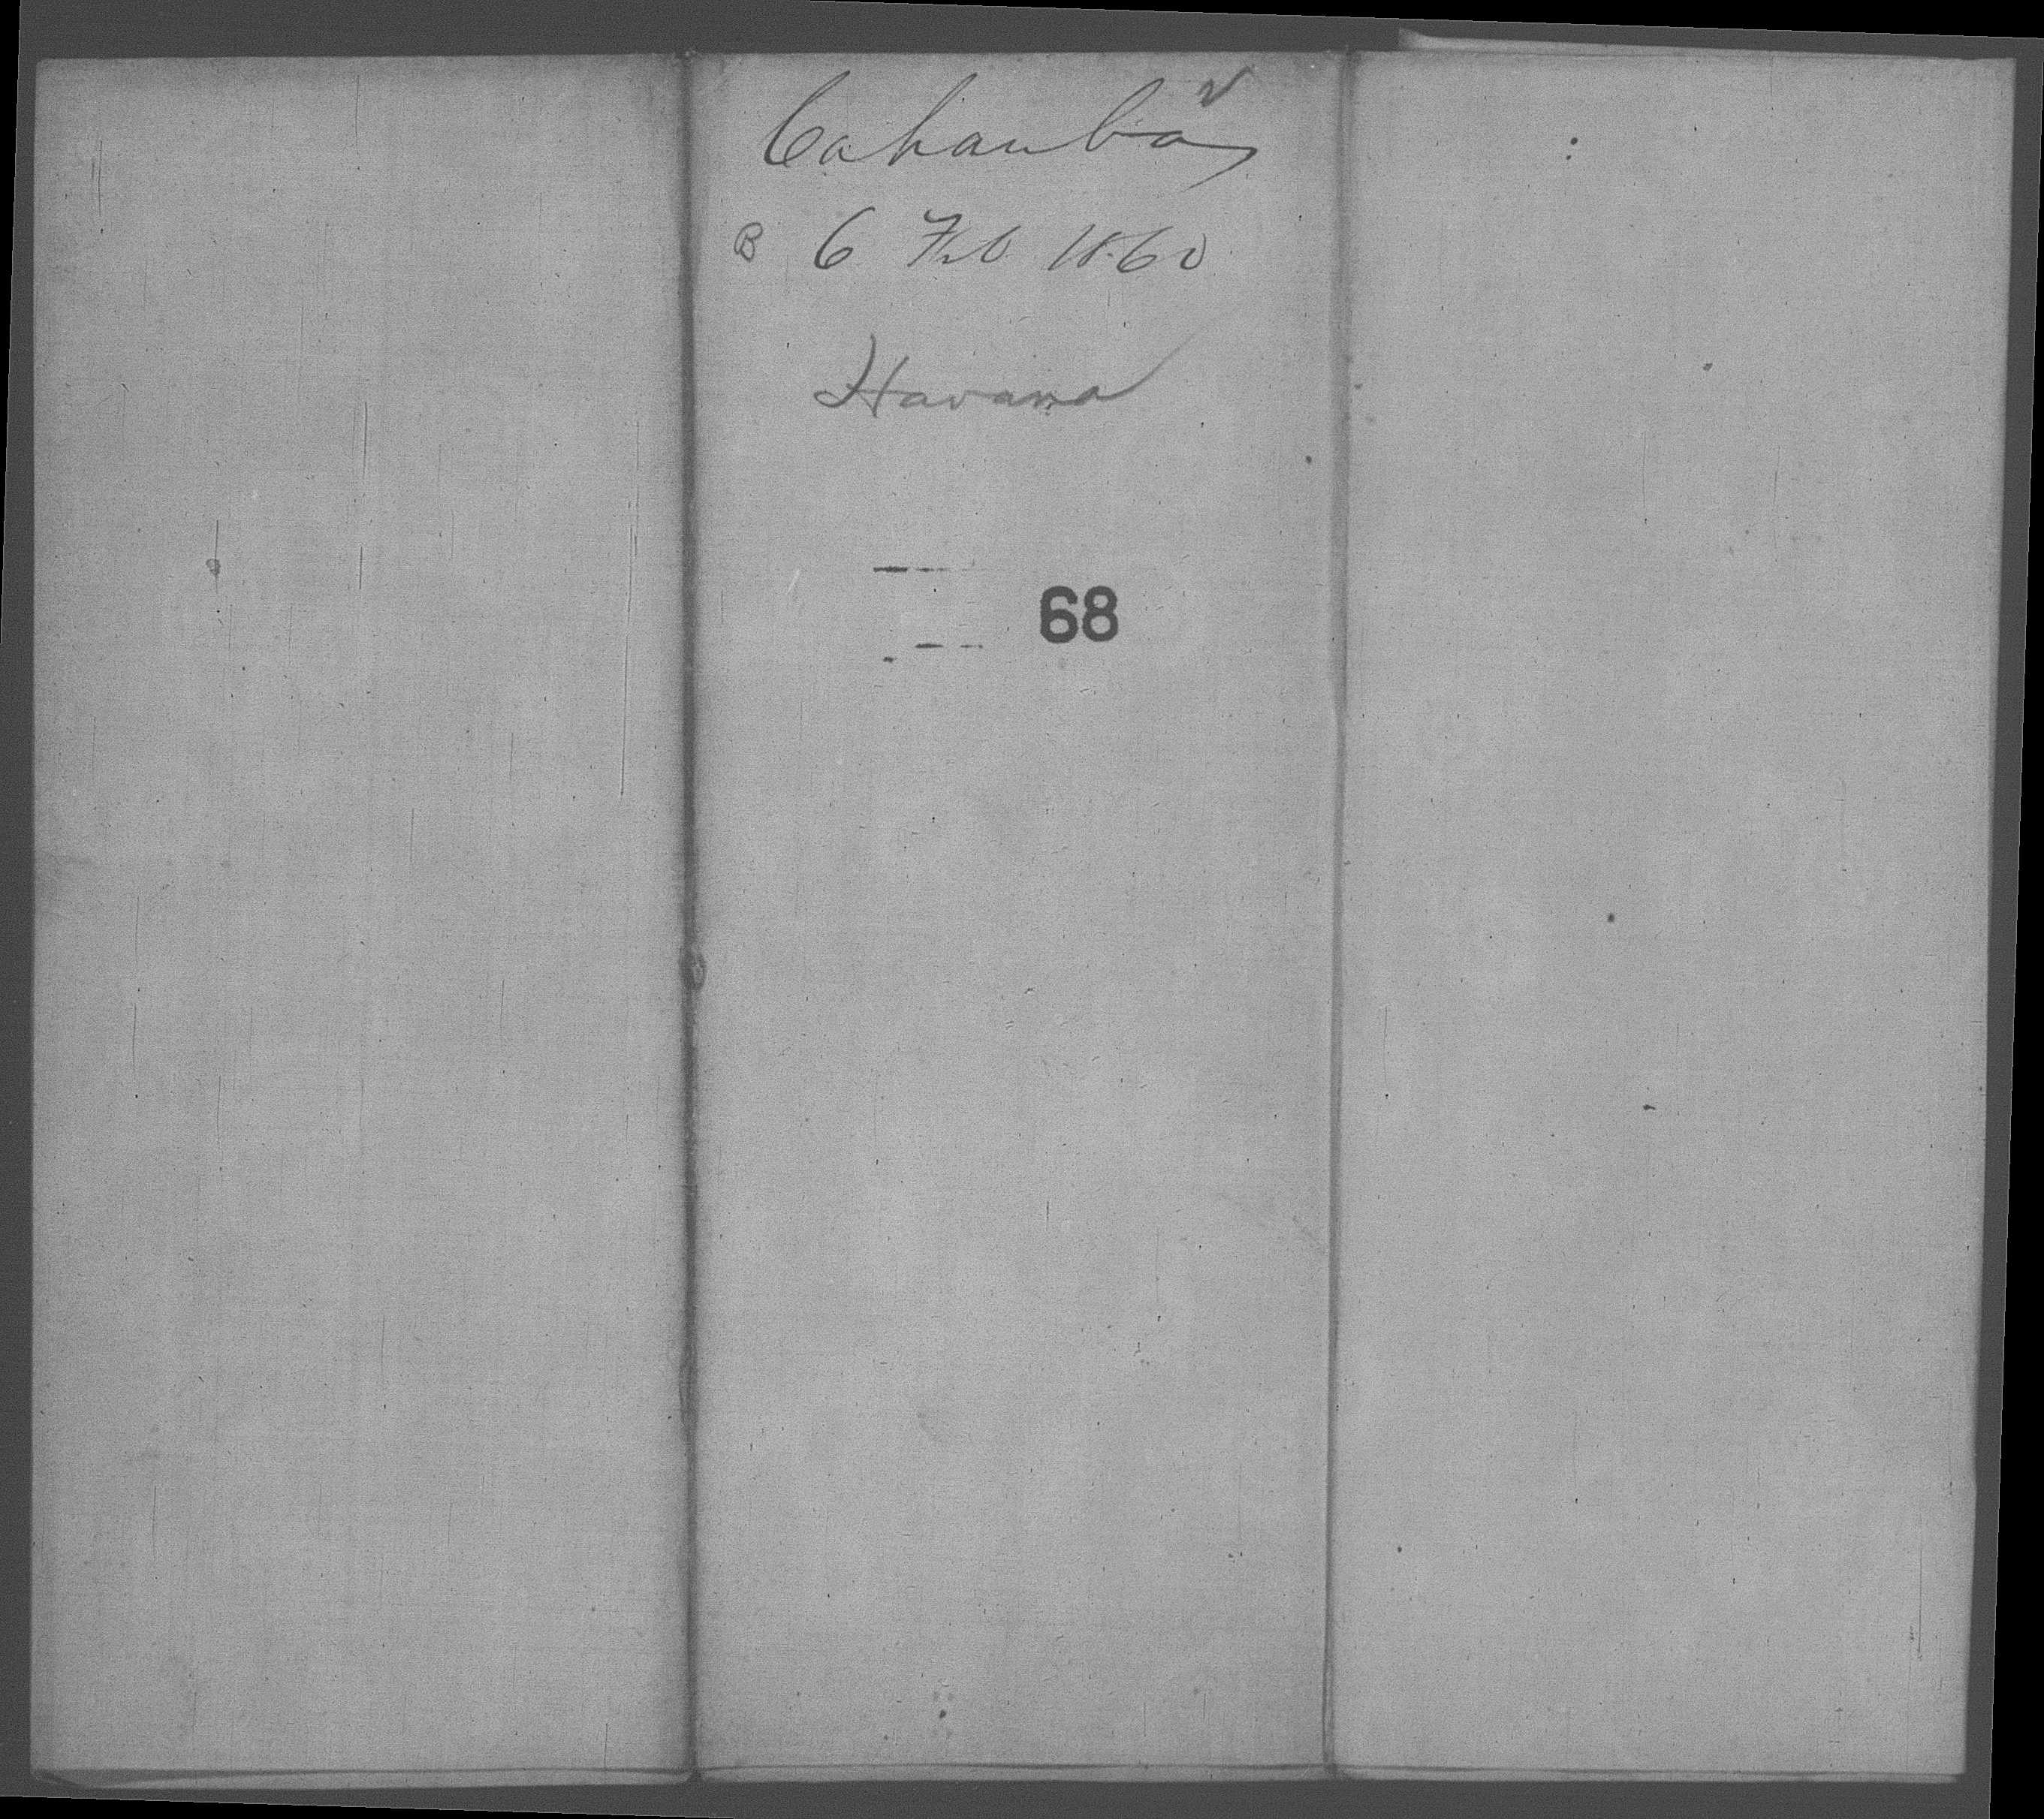 Cahawba
B 6 Feb 1860
Havana
68